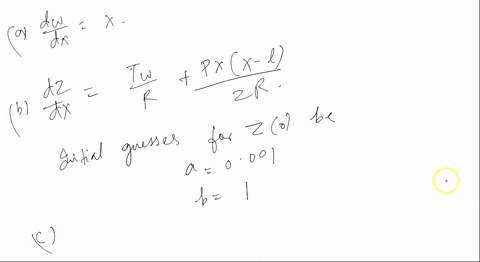 (a) dw/dx = x.
(b) dZ/dx = Tw/R + Px(x-l)/2R.
Initial guesses for Z(0) be
a = 0.001
b = 1
(c)